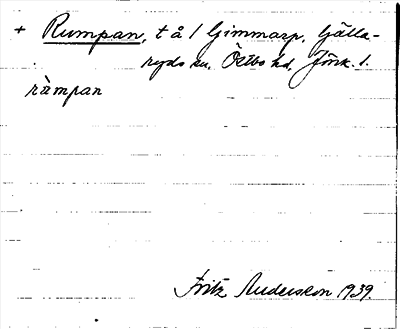 + Rumpan, t å 1 Gimmarp, Gälla-
ryds sn. Östbo hd, Jönk. l.
ràmpan
Fritz Anderson 1939.